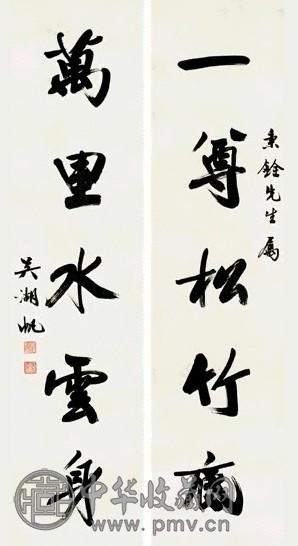 秉銓先生屬
一尊松竹
萬里水雲身
吳湖帆
中华收藏网
www.pmv.cn